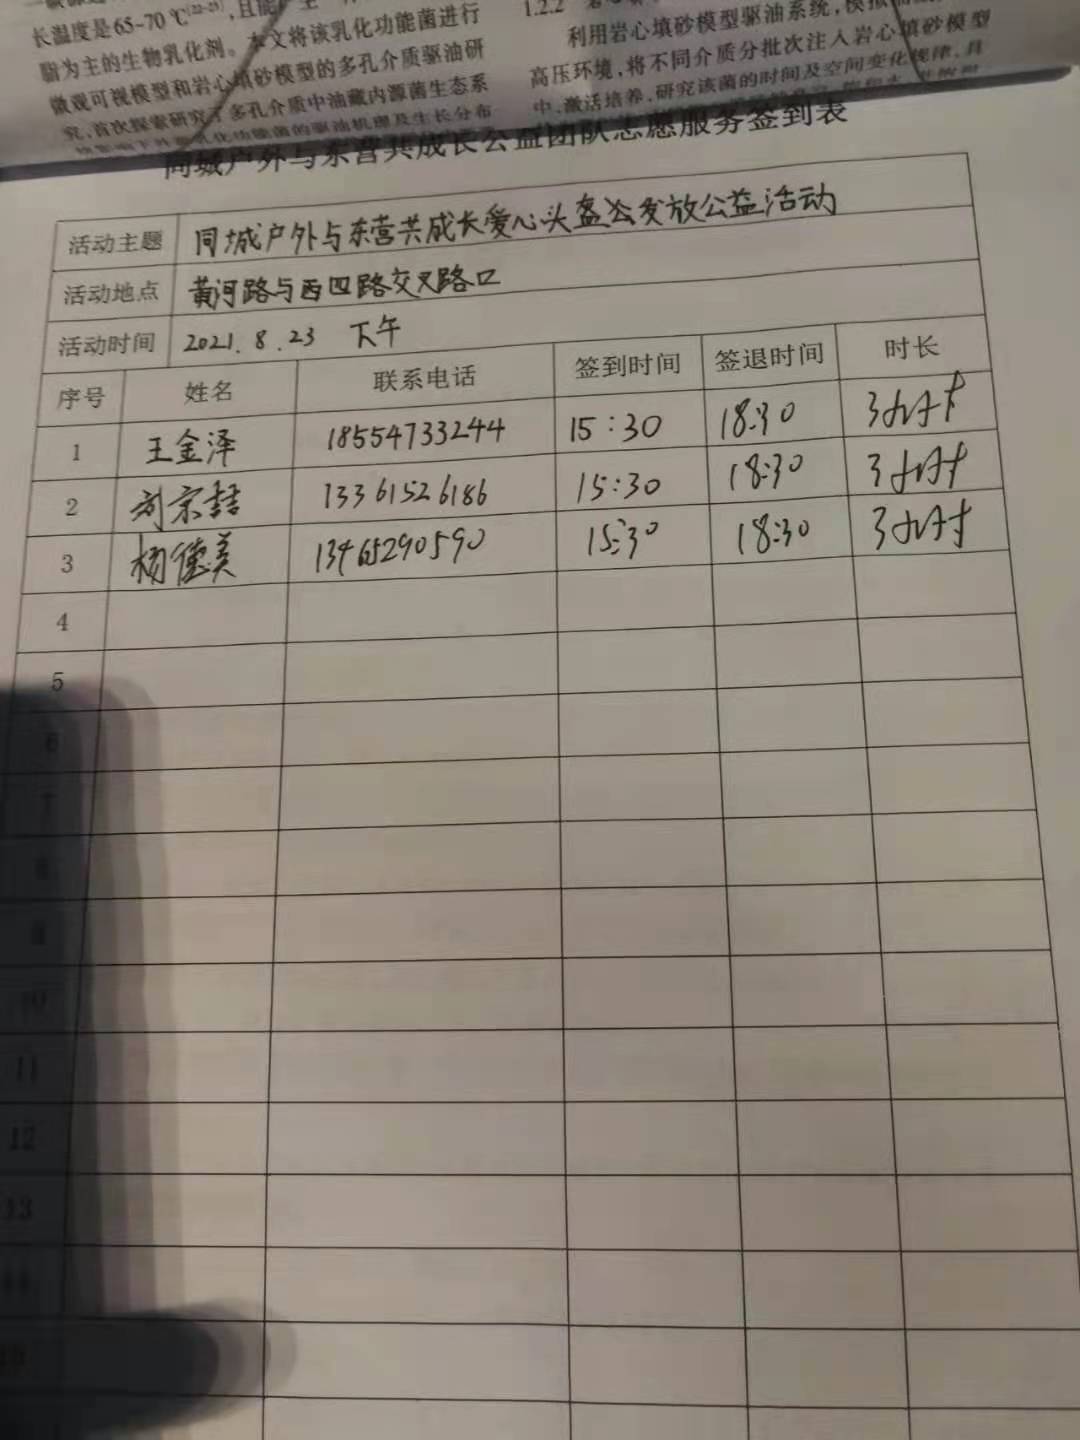 长温度是65-70℃[22-23],且能
脂为主的生物乳化剂。本文将该乳化功能菌进行
微观可视模型和岩心填砂模型的多孔介质驱油研
究,首次探索研究了多孔介质中油藏内源菌生态系
1.2.2
利用岩心填砂模型驱油系统,模拟
高压环境,将不同介质分批次注入岩心填砂模型
中,激活培养,研究该菌的时间及空间变化规律,具
同城户外与东营共成长公益团队志愿服务签到表
活动主题 同城户外与东营共成长爱心头盔发放公益活动
活动地点 黄河路与西四路交叉路口
活动时间 2021.8.23 下午
序号 姓名 联系电话 签到时间 签退时间 时长
1 王金泽 18554733244 15:30 18:30 3小时
2 刘宗喆 13361526186 15:30 18:30 3小时
3 杨德美 13465290590 15:30 18:30 3小时
4
5
6
7
8
9
10
11
12
13